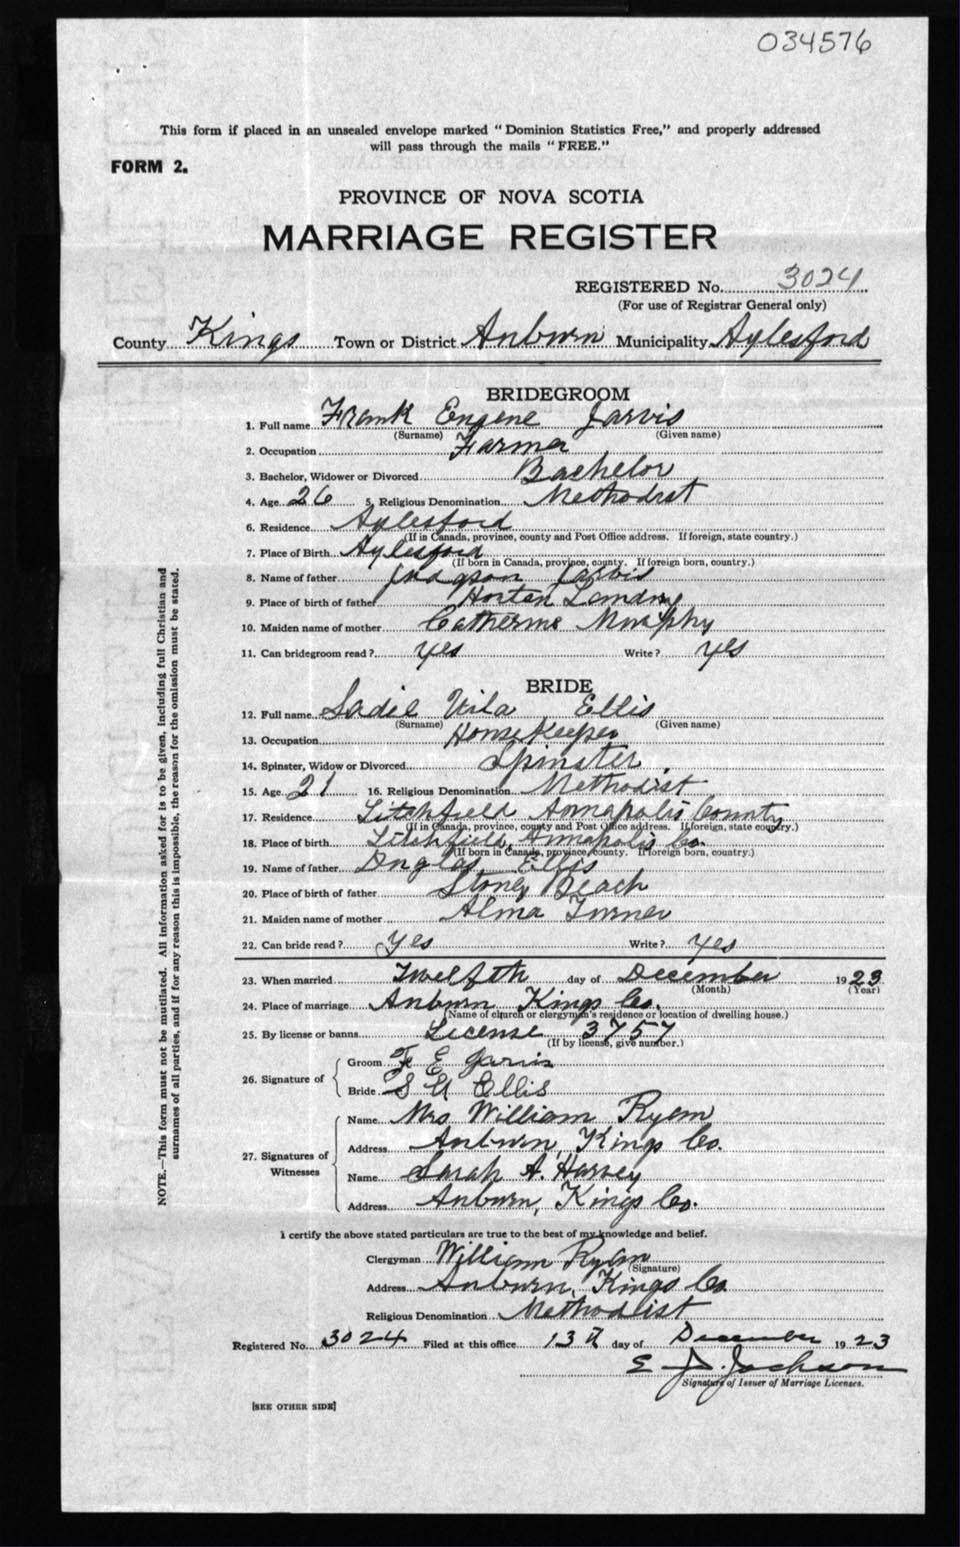 034576
This form if placed in an unsealed envelope marked "Dominion Statistics Free," and properly addressed
will pass through the mails "FREE."
FORM 2.
PROVINCE OF NOVA SCOTIA
MARRIAGE REGISTER
REGISTERED No. 3024
(For use of Registrar General only)
County Kings Town or District Auburn Municipality Aylesford
BRIDEGROOM
1. Full name Frank Eugene Jarvis
(Surname) (Given name)
2. Occupation Farmer
3. Bachelor, Widower or Divorced Bachelor
4. Age 26 5. Religious Denomination Methodist
6. Residence Aylesford
(If in Canada, province, county and Post Office address. If foreign, state country.)
7. Place of Birth Aylesford
(If born in Canada, province, county. If foreign born, country.)
8. Name of father Judgson Jarvis
9. Place of birth of father Horton Landing
10. Maiden name of mother Catherine Murphy
11. Can bridegroom read? yes Write? yes
BRIDE
12. Full name Sadie Ellis
(Surname) (Given name)
13. Occupation HouseKeeper
14. Spinster, Widow or Divorced Spinster
15. Age 21 16. Religious Denomination Methodist
17. Residence Litchfield Annapolis County
(If in Canada, province, county and Post Office address. If foreign, state country.)
18. Place of birth Litchfield, Annapolis Co.
(If born in Canada, province, county. If foreign born, country.)
19. Name of father Duglas Ellis
20. Place of birth of father Stoney Beach
21. Maiden name of mother Alma Turner
22. Can bride read? yes Write? yes
23. When married Twelfth day of December 1923
(Month) (Year)
24. Place of marriage Auburn Kings Co.
(Name of church or clergyman's residence or location of dwelling house.)
25. By license or banns License 3757
(If by license, give number.)
26. Signature of
Groom F E Jarvis
Bride S U Ellis
27. Signatures of Witnesses
Name Mrs William Ryan
Address Auburn, Kings Co.
Name Sarah A. Harvey
Address Auburn, Kings Co.
I certify the above stated particulars are true to the best of my knowledge and belief.
Clergyman William Ryan
(Signature)
Address Auburn, Kings Co
Religious Denomination Methodist
Registered No. 3024 Filed at this office 13th day of December 1923
E. D. Jackson
Signature of Issuer of Marriage Licenses.
[SEE OTHER SIDE]
NOTE.—This form must not be mutilated. All information asked for is to be given, including full Christian and
surnames of all parties, and if for any reason this is impossible, the reason for the omission must be stated.